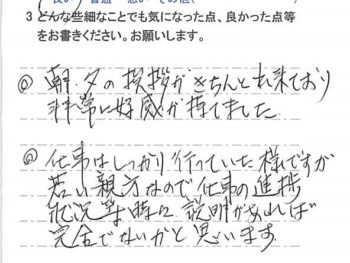 3 どんな些細なことでも気になった点、良かった点等
をお書きください。お願いします。
◎ 朝・夕の挨拶がきちんと出来ており
非常に好感が持てました
◎ 仕事はしっかり行っていた様ですが
若い親方なので仕事の進捗
状況等時に説明があれば
完全でないかと思います